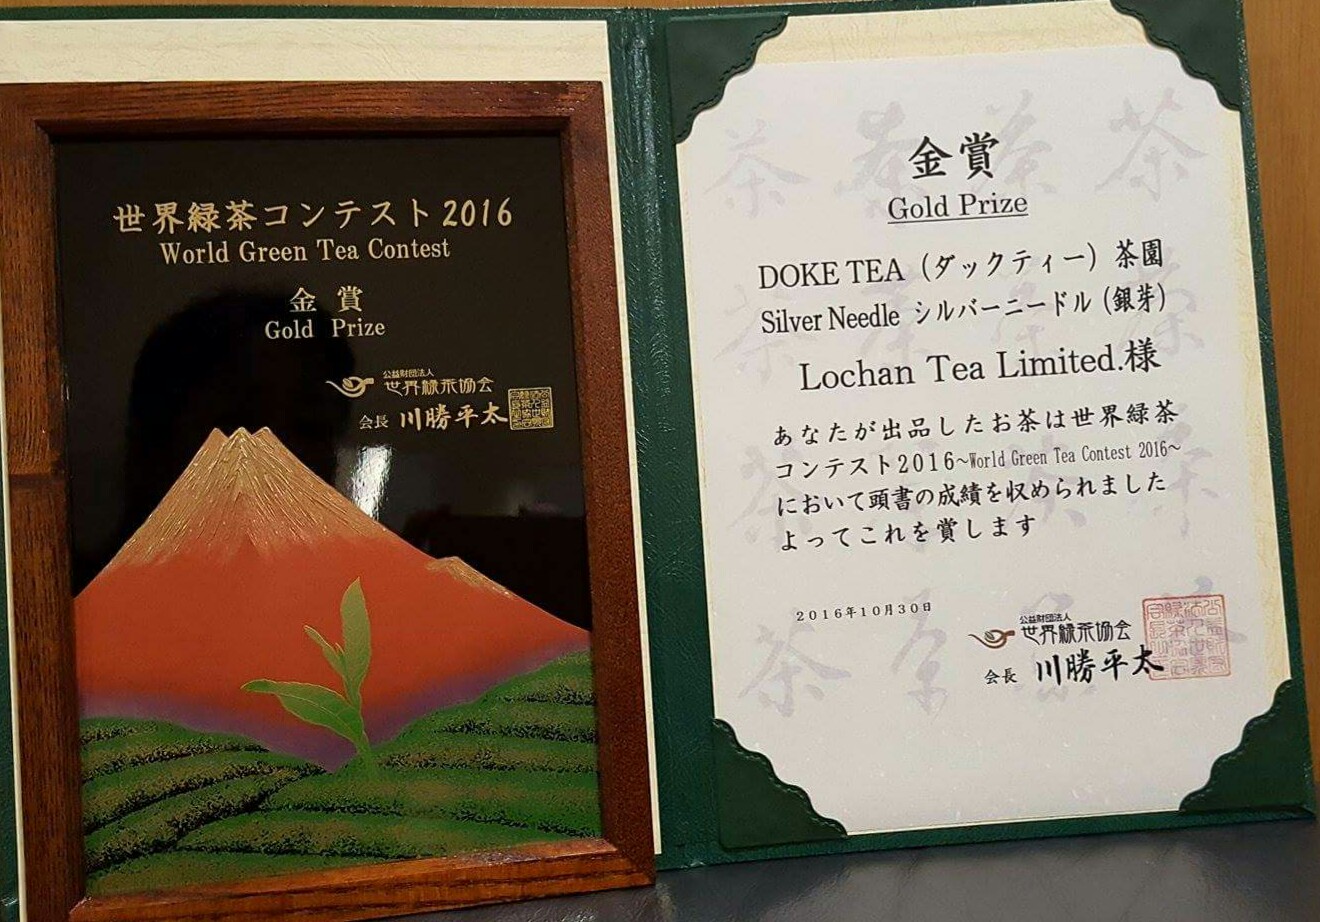 世界緑茶コンテスト2016
World Green Tea Contest
金賞
Gold Prize
公益財団法人
世界緑茶協会
会長 川勝平太
金賞
Gold Prize
DOKE TEA（ダックティー）茶園
Silver Needle シルバーニードル（銀芽）
Lochan Tea Limited.様
あなたが出品したお茶は世界緑茶
コンテスト2016~World Green Tea Contest 2016~
において頭書の成績を収められました
よってこれを賞します
2016年10月30日
公益財団法人
世界緑茶協会
会長 川勝平太